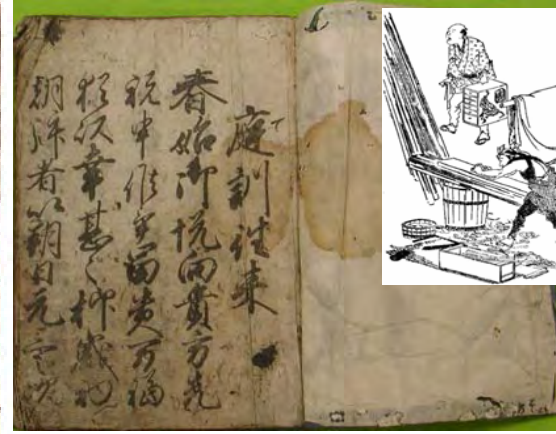 庭訓往来
春始御悦向貴方先
祝申候畢富貴万福
猶以幸甚々抑歳初
朝拝者以朔日元三